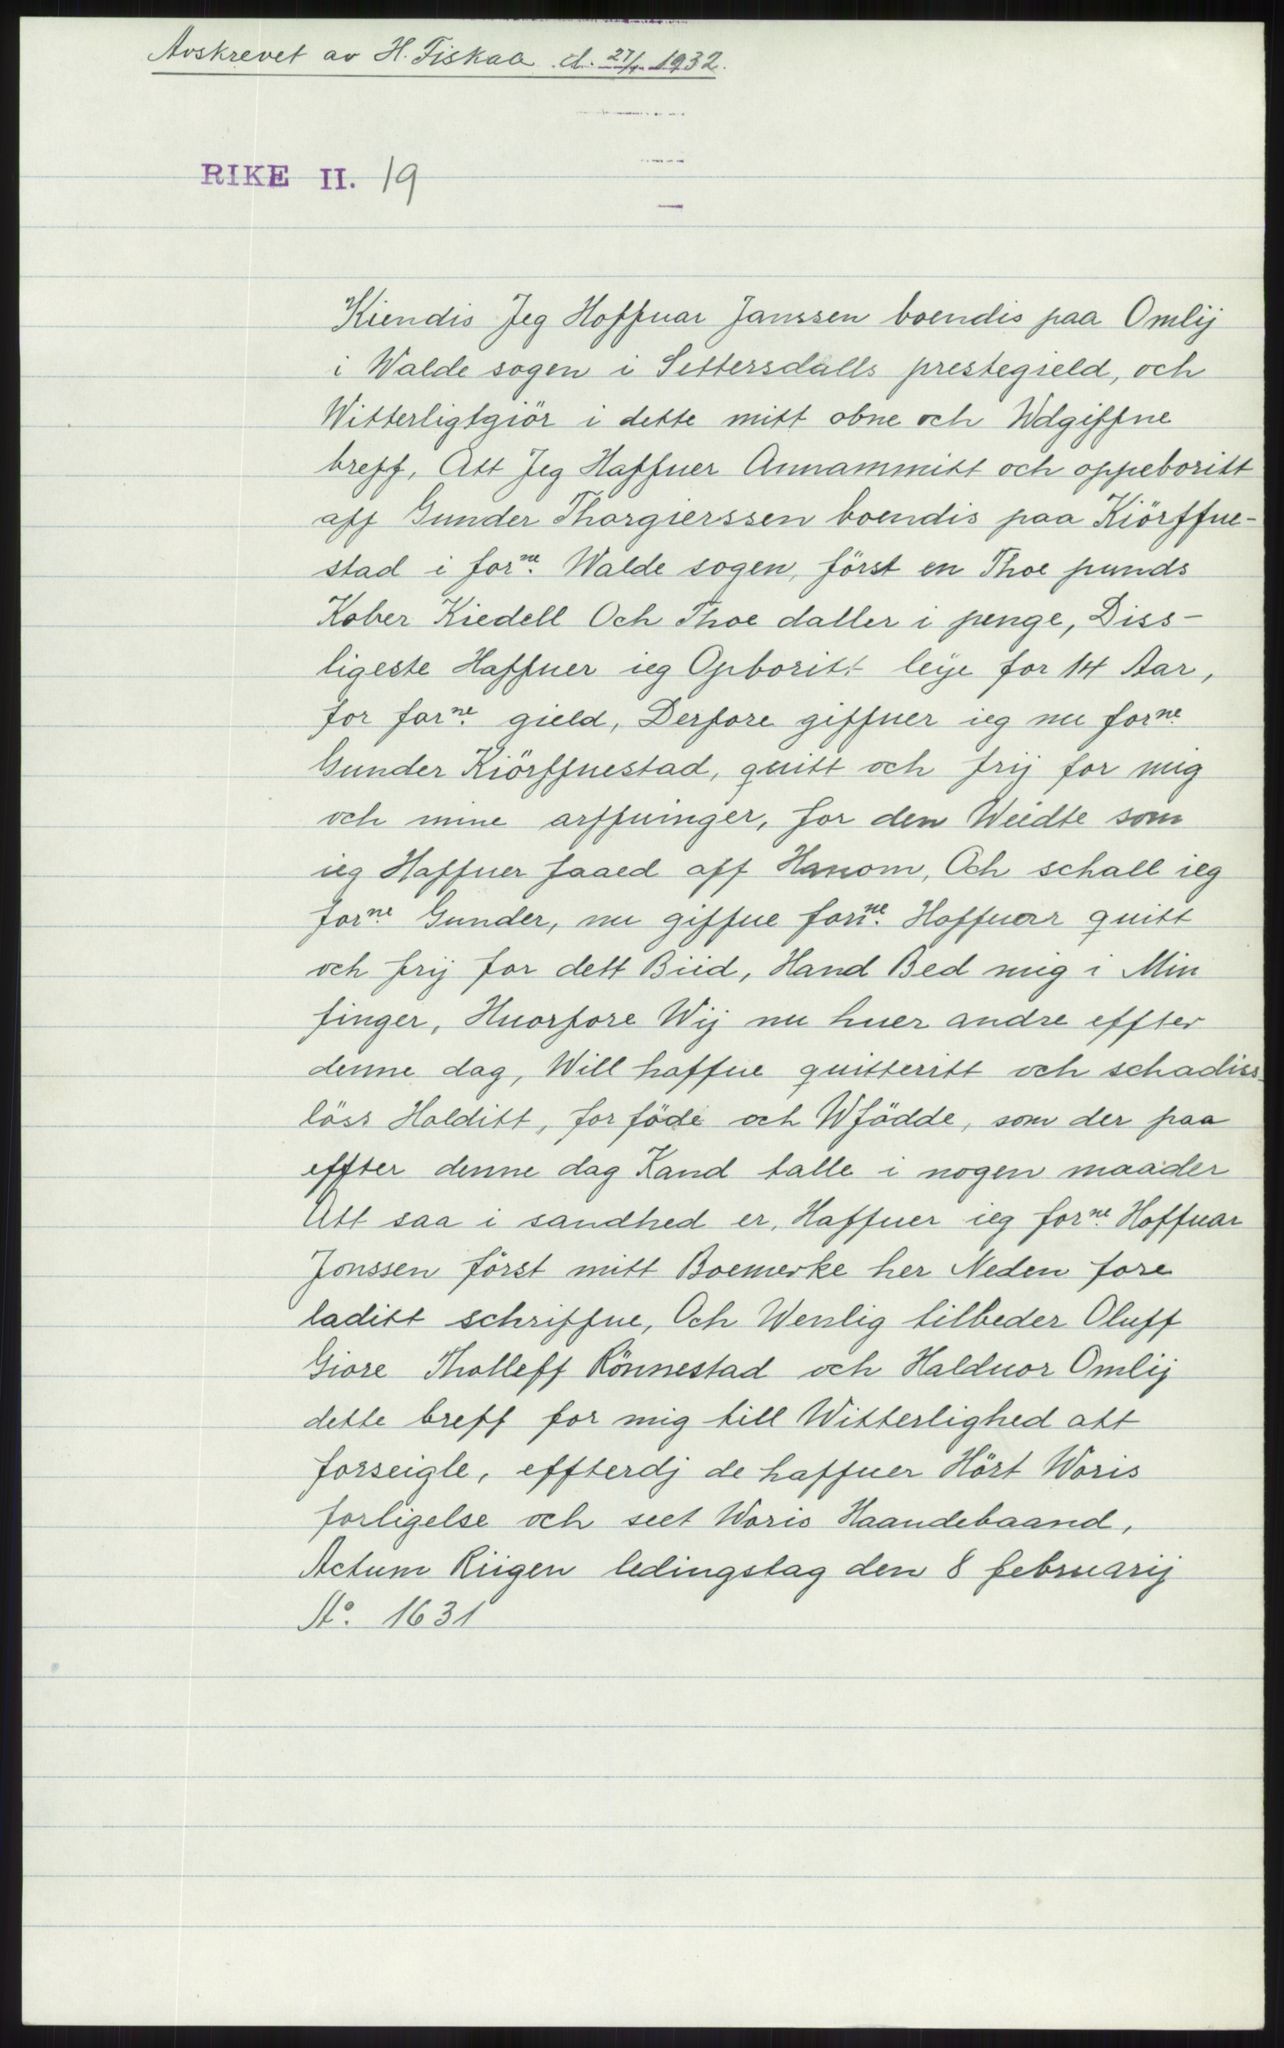 Avskrevet av H. Fiskaa d. 27/4 1932.
RIKE II. 19
Kiendis Jeg Hoffuar Janssen boendis paa Omlij
i Walde sogen i Settersdalls prestegield, och
Witterligtgiör i dette mitt obne och Wdgiffne
breff, Att Jeg Haffuer Annammitt och oppeboritt
aff Gunder Thorgierssen boendis paa Kiörffue-
stad i forne. Walde sogen, först en Thoe punds
Kober Kiedell Och Thoe daller i penge, Diss-
ligeste Haffuer ieg Opboritt leije for 14 Aar,
for forne. gield, Derfore giffuer ieg nu forne.
Gunder Kiörffuestad, quitt och frij for mig
och mine arffuinger, for den Weidte som
ieg Haffuer faaed aff Hanom, Och schall ieg
forne Gunder, nu giffue forne. Hoffuar quitt
och frij for dett Biid, Hand Bed mig i Min
finger, Huorfore Wij nu huer andre effter
denne dag, Will haffue quitteritt och schadiss-
löss Holditt, for föde och Wfödde, som der paa
effter denne dag Kand talle i nogen maader
Att saa i sandhed er, Haffuer ieg forne. Hoffuar
Jonssen först mitt Boemerke her Neden fore
laditt schriffue, Och Wenlig tilbeder Oluff
Giore Tholleff Rönnestad och Halduor Omlij
dette breff for mig till Witterlighed att
forseigle, effterdj de haffuer Hört Woris
forligelse och seet Woris Haandebaand,
Actum Riigen ledingstag den 8 februarij
Ao. 1631